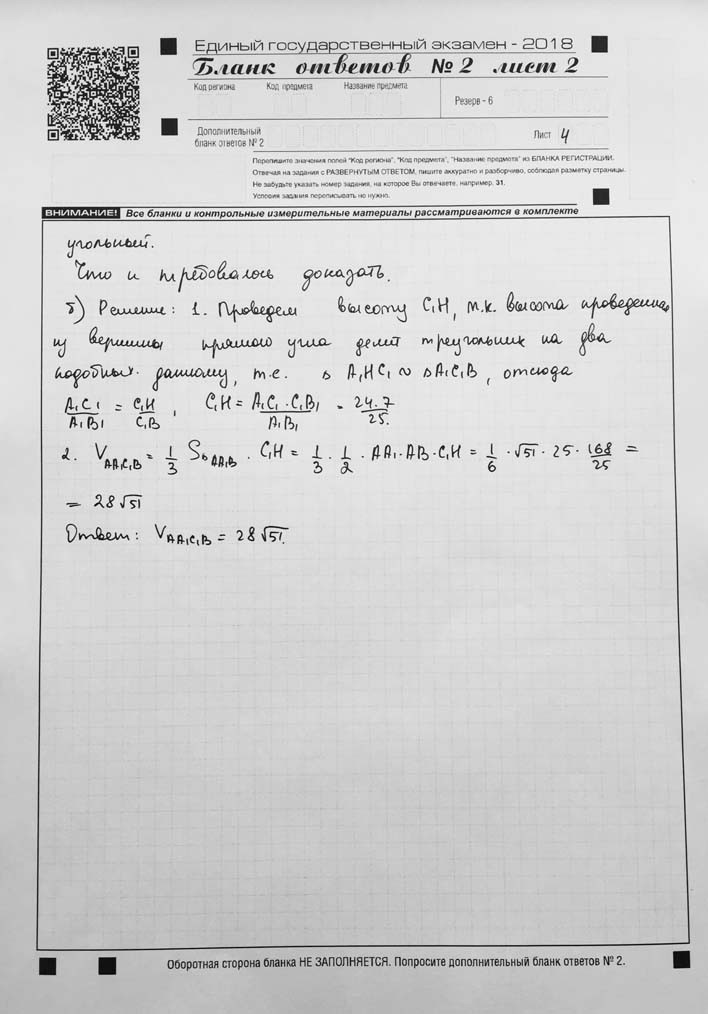 Единый государственный экзамен - 2018
Бланк ответов № 2 лист 2
Код региона Код предмета Название предмета
Резерв - 6
Дополнительный
бланк ответов № 2
Лист 4
Перепишите значения полей "Код региона", "Код предмета", "Название предмета" из БЛАНКА РЕГИСТРАЦИИ.
Отвечая на задания с РАЗВЕРНУТЫМ ОТВЕТОМ, пишите аккуратно и разборчиво, соблюдая разметку страницы.
Не забудьте указать номер задания, на которое Вы отвечаете, например, 31.
Условия задания переписывать не нужно.
ВНИМАНИЕ! Все бланки и контрольные измерительные материалы рассматриваются в комплекте
угольный.
Что и требовалось доказать.
б) Решение: 1. Проведем высоту C₁H, т.к. высота проведенная
из вершины прямого угла делит треугольник на два
подобных данному, т.е. △ A₁HC₁ ~ △A₁C₁B, отсюда
A₁C₁/A₁B₁ = C₁H/C₁B, C₁H = A₁C₁·C₁B₁/A₁B₁ = 24·7/25.
2. V_AA₁C₁B = 1/3 S△AA₁B · C₁H = 1/3 · 1/2 · AA₁·AB·C₁H = 1/6 · √51 · 25 · 168/25 =
= 28√51
Ответ: V_AA₁C₁B = 28√51.
Оборотная сторона бланка НЕ ЗАПОЛНЯЕТСЯ. Попросите дополнительный бланк ответов № 2.